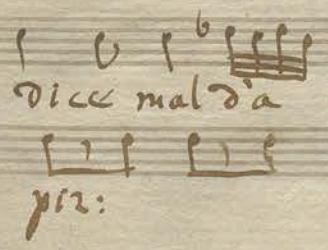 dice mal d'a
piz: